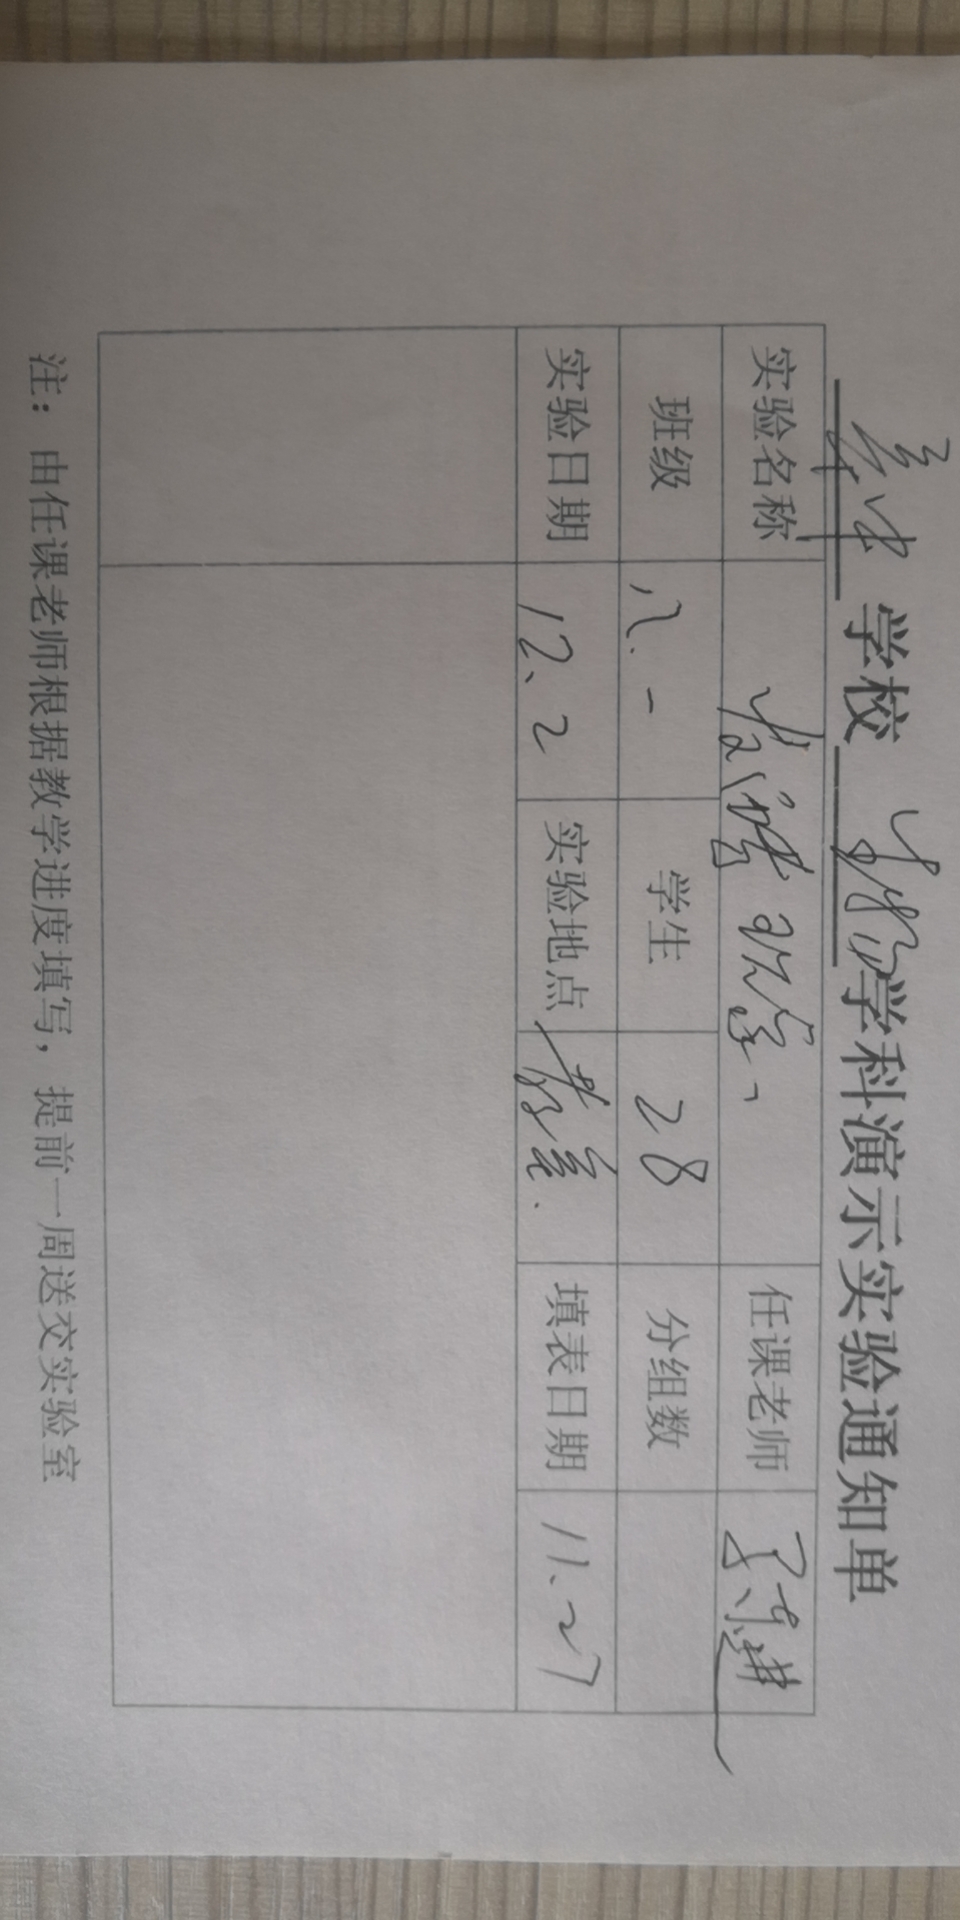 学校 学科演示实验通知单
实验名称 任课老师
班级 八.一 学生 28 分组数
实验日期 12、2 实验地点 教室. 填表日期 11、27
注：由任课老师根据教学进度填写，提前一周送交实验室